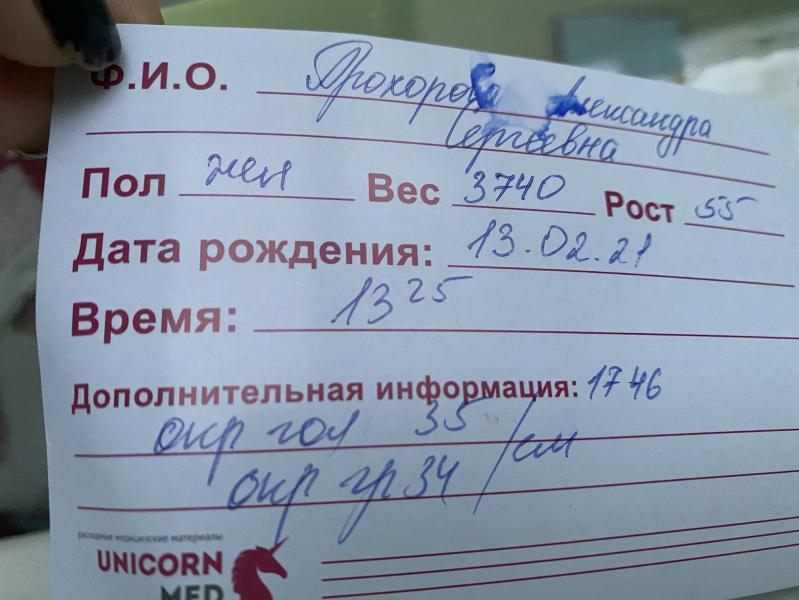 Ф.И.О. Прохорова Александра
Сергеевна
Пол жен Вес 3740 Рост 55
Дата рождения: 13.02.21
Время: 13 25
Дополнительная информация: 1746
окр гол 35 / см
окр гр 34
расходные медицинские материалы
UNICORN
MED